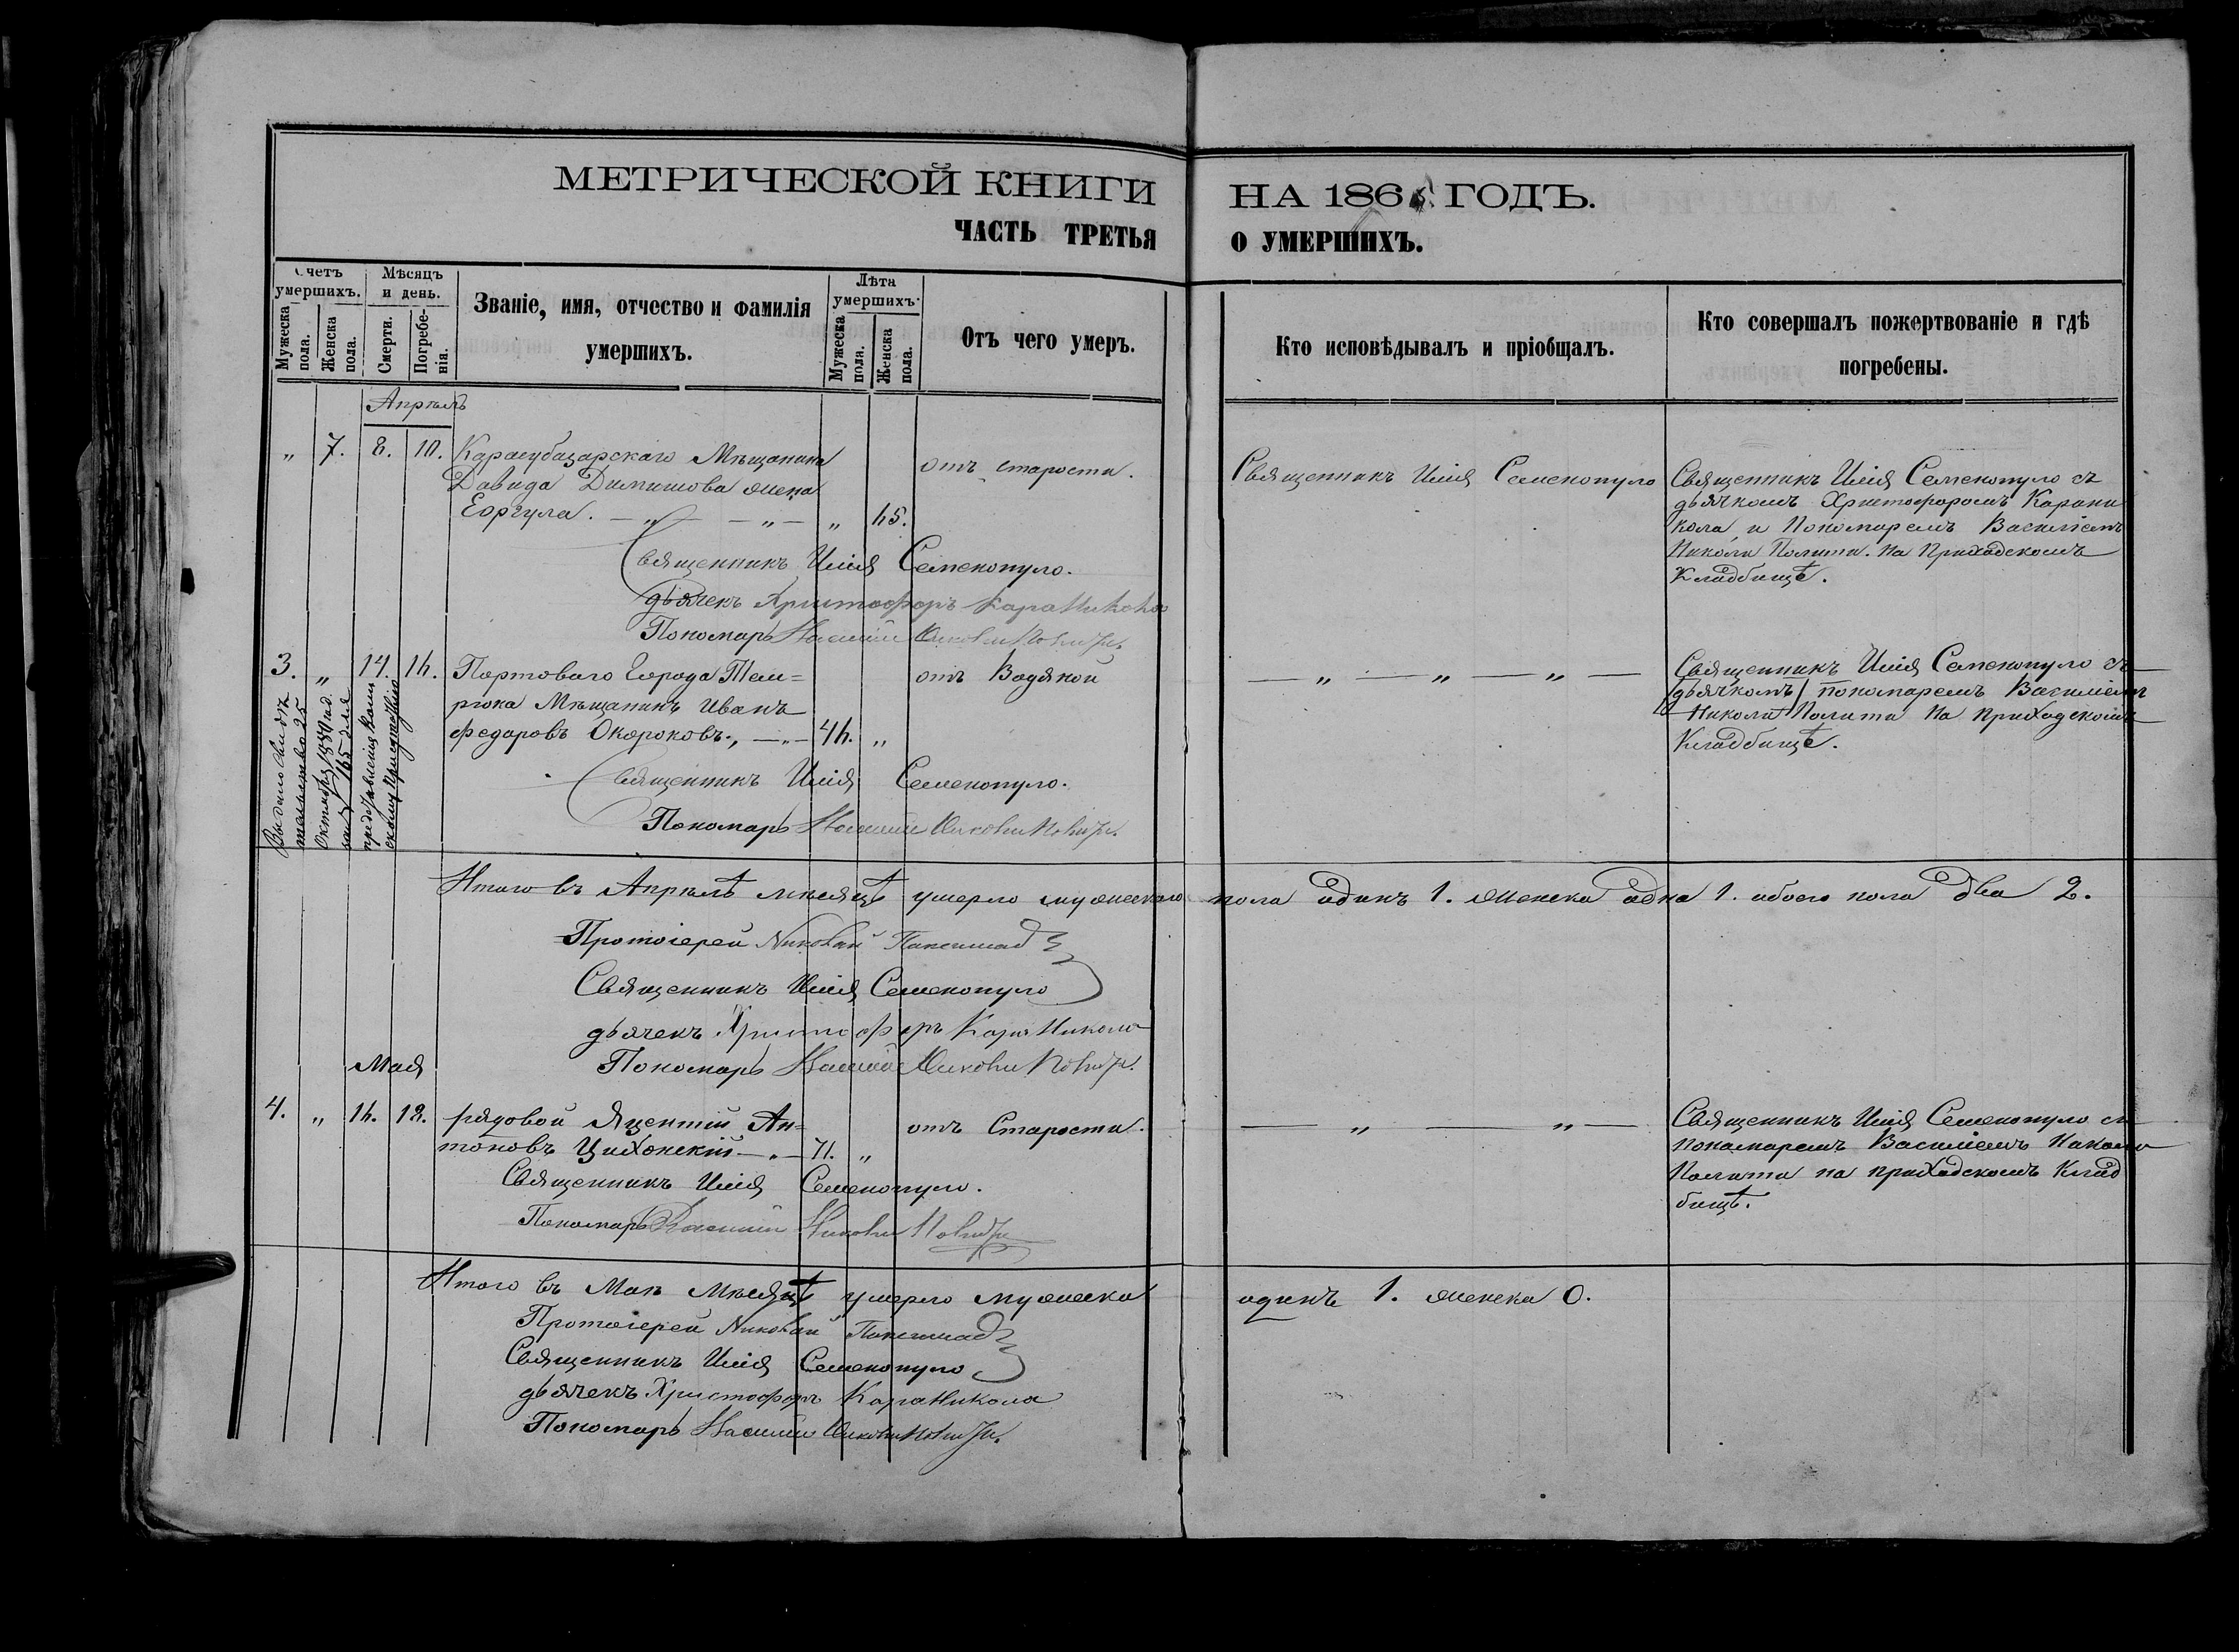 МЕТРИЧЕСКОЙ КНИГИ
НА 186 ГОДЪ.
ЧАСТЬ ТРЕТЬЯ
О УМЕРШИХЪ.
Счетъ умершихъ.
Мужеска пола.
Женска пола.
Мѣсяцъ и день.
Смерти.
Погребенія.
Званіе, имя, отчество и фамилія
умершихъ.
Лѣта умершихъ.
Мужеска пола.
Женска пола.
Отъ чего умеръ.
Кто исповѣдывалъ и пріобщалъ.
Кто совершалъ пожертвованіе и гдѣ
погребены.
Апрѣль
„ 7. 8. 10. Карасубазарскаго Мѣщанина
Давида Димитова жена
Еоргула. — „ — — „ — „
отъ старости.
Священникъ Илія Семенопуло
Священникъ Илія Семенопуло съ
дьячкомъ Христофоромъ Карани
кола, и Пономаремъ Василіемъ
Николи Полити. На Приходскомъ
Кладбищѣ.
Священникъ Илія Семенопуло.
дьячекъ Христофоръ КараНикола
Пономарь Василій Николи Полити.
3. „ 14. Портоваго Города Тем=
рюка Мѣщанинъ Иванъ
Федоровъ Окороковъ., — „ — „
отъ Водяной
— „ — „ — „ —
Священникъ Илія Семенопуло съ
дьячкомъ пономаремъ Василіемъ
Николи Полити На приходскомъ
Кладбищѣ.
Священникъ Илія Семенопуло.
Пономарь Василій Николи Полити.
Выдано свидѣ
тельство 25
Октября
для
предъявленія
Итого въ Апрѣлѣ мѣсяцѣ умерло мужескаго пола одинъ 1. женска одна 1. обоего пола два 2.
Протоіерей Николай
Священникъ Илія Семенопуло
дьячекъ Христофоръ КараНикола
Пономарь Василій Николи Полити.
Мая
4. „ 18. рядовой Яцентій Ан=
тоновъ Цихонскій — „ — 71. „
отъ Старости.
— „ — „ —
Священникъ Илія Семенопуло съ
пономаремъ Василіемъ Николи
Полити на приходскомъ Клад
бищѣ.
Священникъ Илія Семенопуло.
Пономарь Василій Николи Полити
Итого въ Маѣ Мѣсяцѣ умерло мужеска одинъ 1. женска 0.
Протоіерей Николай
Священникъ Илія Семенопуло
дьячекъ Христофоръ КараНикола
Пономарь Василій Николи Полити.